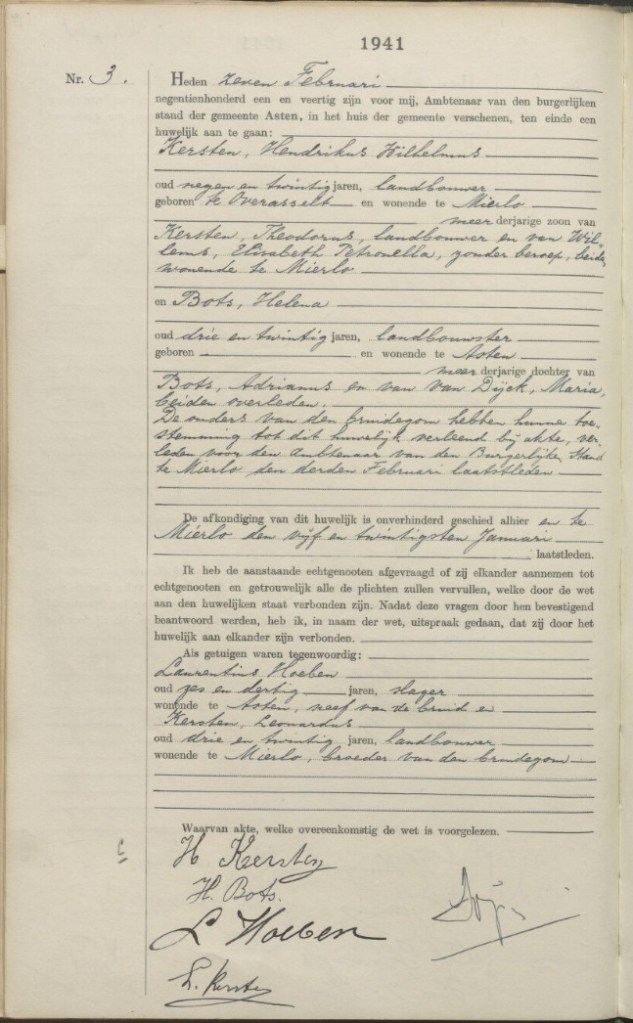 1941
Nr. 3.
Heden zeven Februari
negentienhonderd een en veertig zijn voor mij, Ambtenaar van den burgerlijken
stand der gemeente Asten, in het huis der gemeente verschenen, ten einde een
huwelijk aan te gaan:
Kersten, Hendrikus Wilhelmus
oud negen en twintig jaren, landbouwer
geboren te Overasselt en wonende te Mierlo
meer derjarige zoon van
Kersten, Theodorus, landbouwer en van Wil-
lems, Elisabeth Petronella, zonder beroep, beide
wonende te Mierlo
en Bots, Helena
oud drie en twintig jaren, landbouwster
geboren en wonende te Asten
meer derjarige dochter van
Bots, Adrianus en van van Dijck, Maria,
beiden overleden.
De ouders van den bruidegom hebben hunne toe-
stemming tot dit huwelijk verleend bij akte, ver-
leden voor den Ambtenaar van den Burgerlijken Stand
te Mierlo den derden Februari laatstleden
De afkondiging van dit huwelijk is onverhinderd geschied alhier en te
Mierlo den vijf en twintigsten Januari
laatstleden.
Ik heb de aanstaande echtgenooten afgevraagd of zij elkander aannemen tot
echtgenooten en getrouwelijk alle de plichten zullen vervullen, welke door de wet
aan den huwelijken staat verbonden zijn. Nadat deze vragen door hen bevestigend
beantwoord werden, heb ik, in naam der wet, uitspraak gedaan, dat zij door het
huwelijk aan elkander zijn verbonden.
Als getuigen waren tegenwoordig:
Laurentius Hoeben
oud zes en dertig jaren, slager
wonende te Asten, neef van de bruid en
Kersten, Leonardus
oud drie en twintig jaren, landbouwer
wonende te Mierlo, broeder van den bruidegom
Waarvan akte, welke overeenkomstig de wet is voorgelezen.
H Kersten
H. Bots.
L Hoeben
L. Kersten